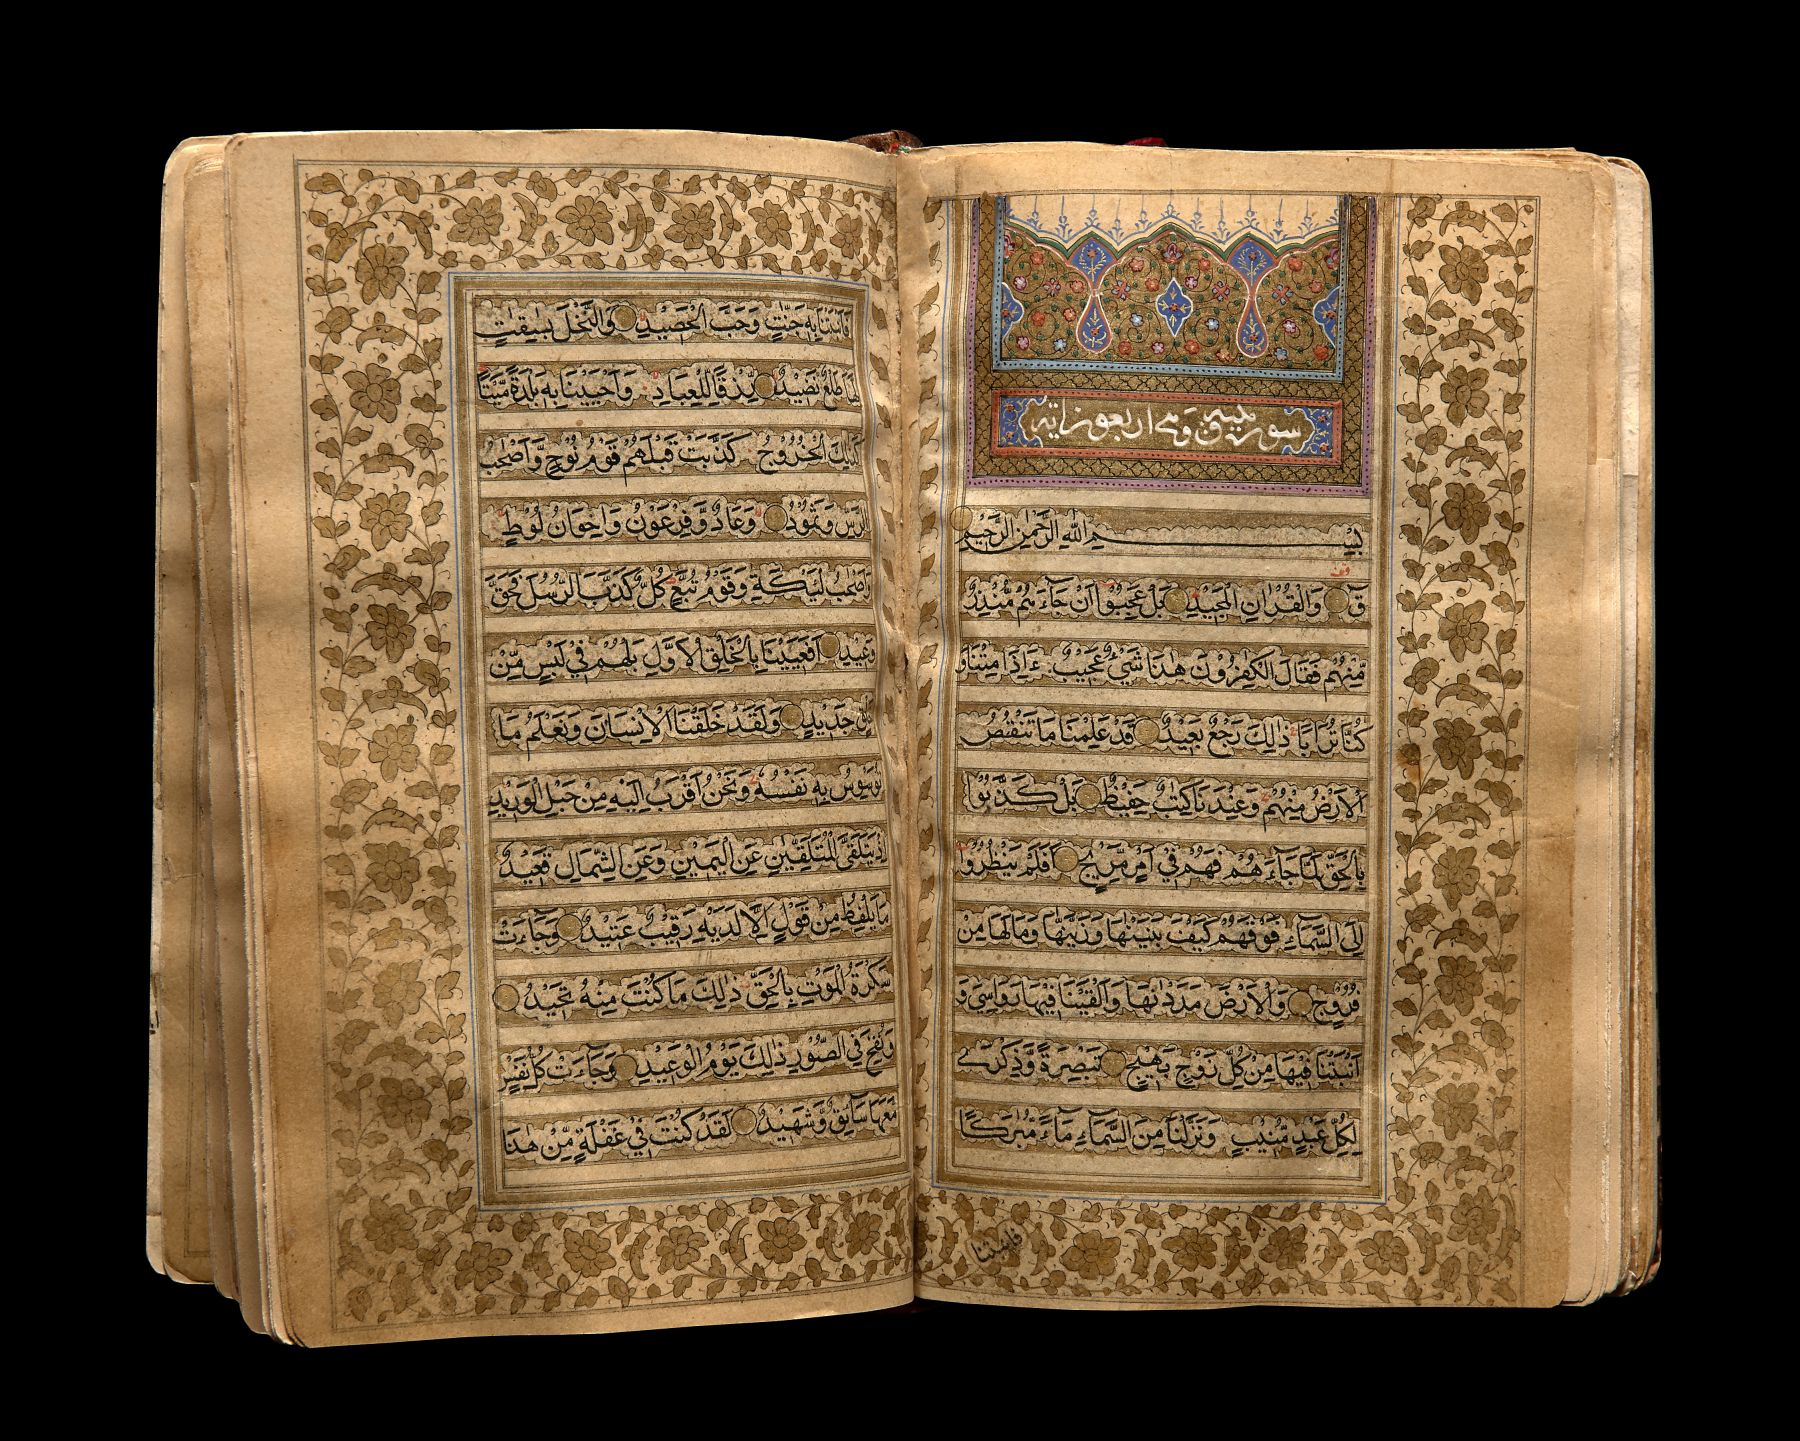 سورة ق مكية وهي اربعون اية
بسم الله الرحمن الرحيم
قف
قٓ وَالْقُرْاٰنِ الْمَجِيْدِ بَلْ عَجِبُوْٓا اَنْ جَآءَهُمْ مُّنْذِرٌ
مِّنْهُمْ فَقَالَ الْكٰفِرُوْنَ هٰذَا شَيْءٌ عَجِيْبٌ ءَاِذَا مِتْنَا وَ
كُنَّا تُرَابًا ذٰلِكَ رَجْعٌ بَعِيْدٌ قَدْ عَلِمْنَا مَا تَنْقُصُ
الْاَرْضُ مِنْهُمْ وَعِنْدَنَا كِتٰبٌ حَفِيْظٌ بَلْ كَذَّبُوْا
بِالْحَقِّ لَمَّا جَآءَهُمْ فَهُمْ فِيْٓ اَمْرٍ مَّرِيْجٍ اَفَلَمْ يَنْظُرُوْٓا
اِلَى السَّمَآءِ فَوْقَهُمْ كَيْفَ بَنَيْنٰهَا وَزَيَّنّٰهَا وَمَا لَهَا مِنْ
فُرُوْجٍ وَالْاَرْضَ مَدَدْنٰهَا وَاَلْقَيْنَا فِيْهَا رَوَاسِيَ وَ
اَنْبَتْنَا فِيْهَا مِنْ كُلِّ زَوْجٍ بَهِيْجٍ تَبْصِرَةً وَّذِكْرٰى
لِكُلِّ عَبْدٍ مُّنِيْبٍ وَنَزَّلْنَا مِنَ السَّمَآءِ مَآءً مُّبٰرَكًا
فانبتنا
فَاَنْبَتْنَا بِهٖ جَنّٰتٍ وَّحَبَّ الْحَصِيْدِ وَالنَّخْلَ بٰسِقٰتٍ
لَّهَا طَلْعٌ نَّضِيْدٌ رِّزْقًا لِّلْعِبَادِ وَاَحْيَيْنَا بِهٖ بَلْدَةً مَّيْتًا
كَذٰلِكَ الْخُرُوْجُ كَذَّبَتْ قَبْلَهُمْ قَوْمُ نُوْحٍ وَّاَصْحٰبُ
الرَّسِّ وَثَمُوْدُ وَعَادٌ وَّفِرْعَوْنُ وَاِخْوَانُ لُوْطٍ
وَّاَصْحٰبُ لْئَيْكَةِ وَقَوْمُ تُبَّعٍ كُلٌّ كَذَّبَ الرُّسُلَ فَحَقَّ
وَعِيْدِ اَفَعَيِيْنَا بِالْخَلْقِ الْاَوَّلِ بَلْ هُمْ فِيْ لَبْسٍ مِّنْ
خَلْقٍ جَدِيْدٍ وَلَقَدْ خَلَقْنَا الْاِنْسَانَ وَنَعْلَمُ مَا
تُوَسْوِسُ بِهٖ نَفْسُهٗ وَنَحْنُ اَقْرَبُ اِلَيْهِ مِنْ حَبْلِ الْوَرِيْدِ
اِذْ يَتَلَقَّى الْمُتَلَقِّيٰنِ عَنِ الْيَمِيْنِ وَعَنِ الشِّمَالِ قَعِيْدٌ
مَا يَلْفِظُ مِنْ قَوْلٍ اِلَّا لَدَيْهِ رَقِيْبٌ عَتِيْدٌ وَجَآءَتْ
سَكْرَةُ الْمَوْتِ بِالْحَقِّ ذٰلِكَ مَا كُنْتَ مِنْهُ تَحِيْدُ
وَنُفِخَ فِي الصُّوْرِ ذٰلِكَ يَوْمُ الْوَعِيْدِ وَجَآءَتْ كُلُّ نَفْسٍ
مَّعَهَا سَآئِقٌ وَّشَهِيْدٌ لَقَدْ كُنْتَ فِيْ غَفْلَةٍ مِّنْ هٰذَا